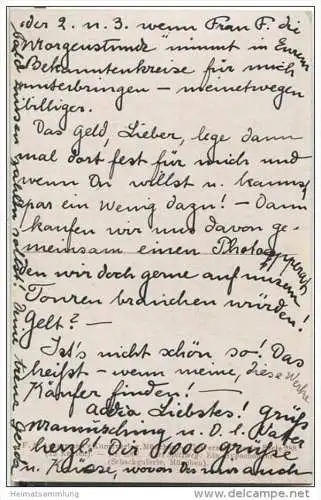 oder 2. u. 3. wenn Frau F. die
"Morgenstunde" nimmt in Eurem
Bekanntenkreise für mich
unterbringen – meinetwegen
billiger.
Das Geld, Lieber, lege dann
mal dort fest für mich und
wenn Du willst u. kannst,
spar ein wenig dazu! – Dann
kaufen wir uns davon ge-
meinsam einen Photoapparat
den wir doch gerne auf unsern
Touren brauchen würden!
Gelt? –
Ist's nicht schön so! Das
heißt – wenn meine, diese Werke
Käufer finden! –
Liebstes! Grüß
u. O. l. Vater
herzl! Der 1000 Grüße
u. Küsse, wovon Du Mama auch
(Schackgalerie, München)
Heimatsammlung